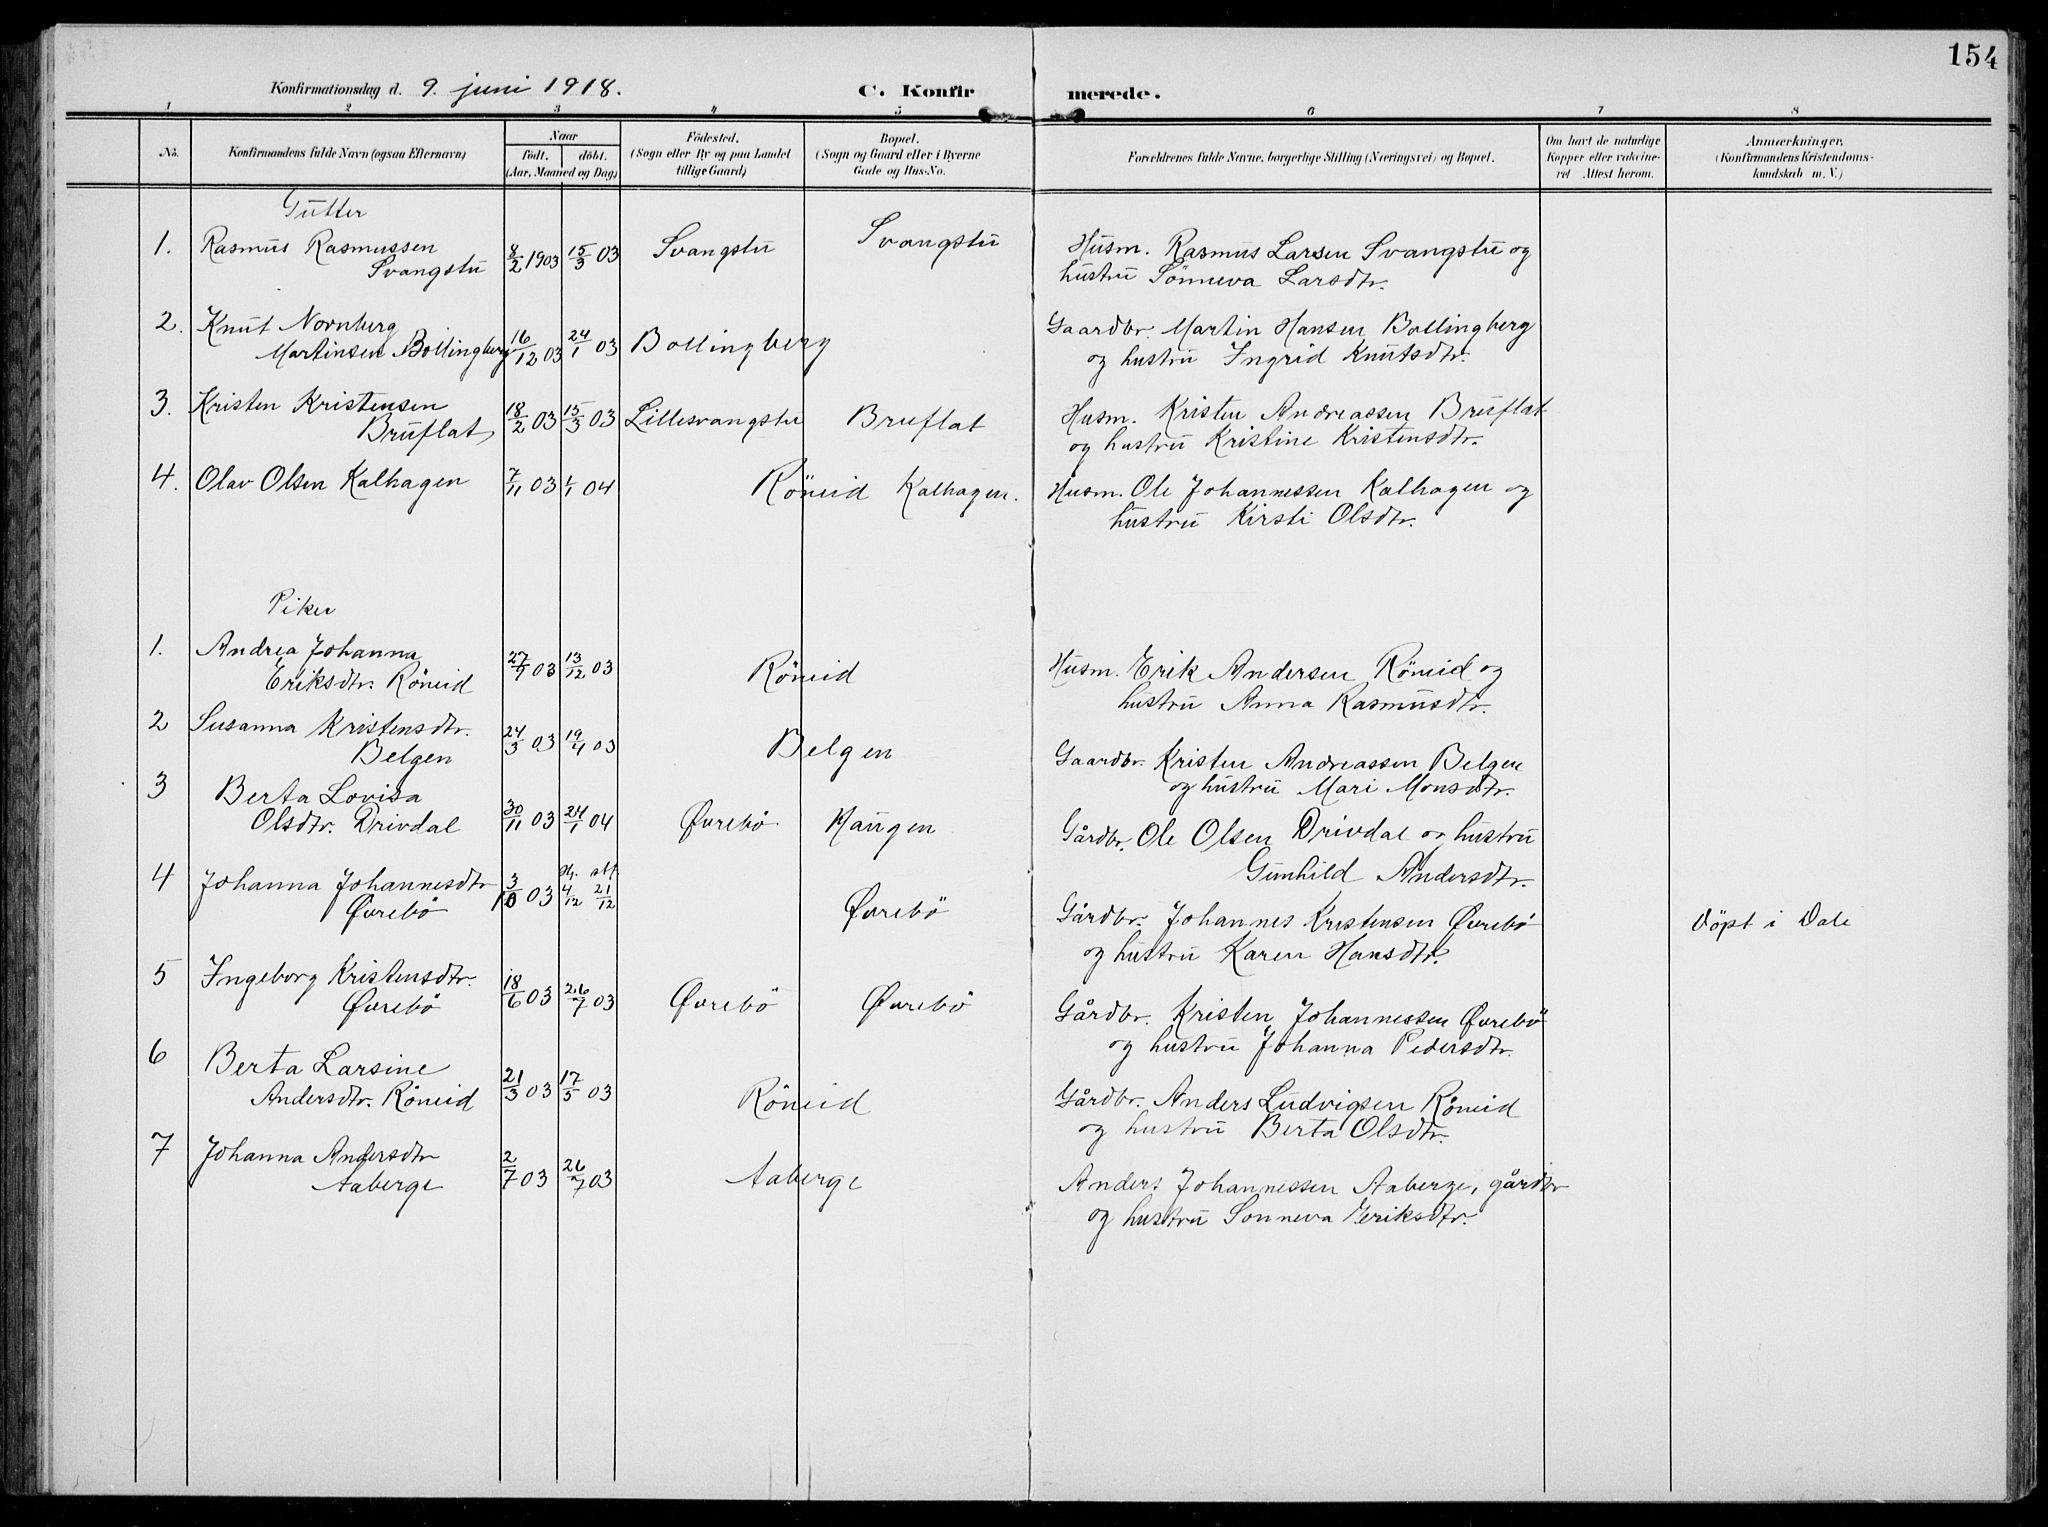 154
Konfirmationsdag d. 9. juni 1918. C. Konfirmerede.
1 2 3 4 5 6 7 8
No. Konfirmandens fulde Navn (ogsaa Efternavn) Naar födt. döbt. (Aar, Maaned og Dag) Födested. (Sogn eller By og paa Landet tillige Gaard) Bopæl. (Sogn og Gaard eller i Byerne Gade og Hus-No. Forældrenes fulde Navne, borgerlige Stilling (Næringsvei) og Bopæl. Om havt de naturlige Kopper eller vakcineret Attest herom. Anmærkninger. (Konfirmandens Kristendomskundskab m. V.)
Gutter
1. Rasmus Rasmussen Svangstu 8/2 1903 15/3 03 Svangstu Svangstu Husm. Rasmus Larsen Svangstu og
hustru Sönneva Larsdtr.
2. Knut Nornberg Martinsen Bollingberg 16/12 03 24/1 03 Bollingberg Gaardbr. Martin Hansen Bollingberg
og hustru Ingrid Knutsdtr.
3. Kristen Kristensen Bruflat 18/2 03 15/3 03 Lillesvangstu Bruflat Husm. Kristen Andreassen Bruflat
og hustru Kristine Kristensdtr.
4. Olav Olsen Kalhagen 7/11 03 1/1 04 Röneid Kalhagen. Husm. Ole Johannessen Kalhagen og
hustru Kirsti Olsdtr.
Piker
1. Andrea Johanna Eriksdtr. Röneid 27/9 03 13/12 03 Röneid Husm. Erik Andersen Röneid og
hustru Anna Rasmusdtr.
2 Susanna Kristensdtr. Belgen 24/3 03 19/4 03 Belgen Gaardbr. Kristen Andreassen Belgen
og hustru Mari Monsdtr.
3 Berta Lovisa Olsdtr. Drivdal 30/11 03 24/1 04 Øvrebö Haugen Gårdbr. Ole Olsen Drivdal og hustru
Gunhild Andersdtr.
4 Johanna Johannesdtr Øvrebö 3/10 03 4/12 21/12 Øvrebö Gårdbr. Johannes Kristensen Øvrebö Döpt i Dale
og hustru Karen Hansdtr.
5 Ingeborg Kristensdtr. Øvrebö 18/6 03 26/7 03 Øvrebö Øvrebö Gårdbr. Kristen Johannessen Øvrebö
og hustru Johanna Pedersdtr.
6 Berta Larsine Andersdtr. Röneid 21/3 03 17/5 03 Röneid Gårdbr. Anders Ludvigsen Röneid
og hustru Berta Olsdtr.
7 Johanna Andersdtr Aaberge 2/7 03 26/7 03 Aaberge Anders Johannessen Aaberge, gårdbr
og hustru Sonneva Geriksdtr.